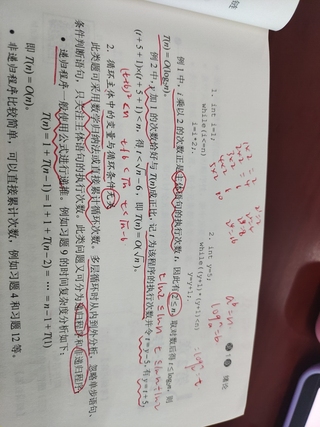 第1章 绪论
1. int i=1;
while(i<=n)
i=i*2;
2. int y=5;
while((y+1)*(y+1)<n)
y=y+1;
例 1 中，i 乘以 2 的次数正是主体语句的执行次数 t，因此有 2^t≤n，取对数后得 t≤log₂n，则
T(n)=O(log₂n)。
例 2 中，y 加 1 的次数恰好与 T(n)成正比，记 t 为该程序的执行次数并令 t=y-5，有 y=t+5，
(t+5+1)×(t+5+1)<n，得 t<√n-6，即 T(n)=O(√n)。
2. 循环主体中的变量与循环条件无关
此类题可采用数学归纳法或直接累计循环次数。多层循环时从内到外分析，忽略单步语句、
条件判断语句，只关注主体语句的执行次数。此类问题又可分为递归程序和非递归程序：
● 递归程序一般使用公式进行递推。例如习题 9 的时间复杂度分析如下：
T(n)=1+T(n-1)=1+1+T(n-2)=⋯=n-1+T(1)
即 T(n)=O(n)。
● 非递归程序比较简单，可以直接累计次数，例如习题 4 和习题 12 等。
(t+6)²<n
t+6<√n
t<√n-6